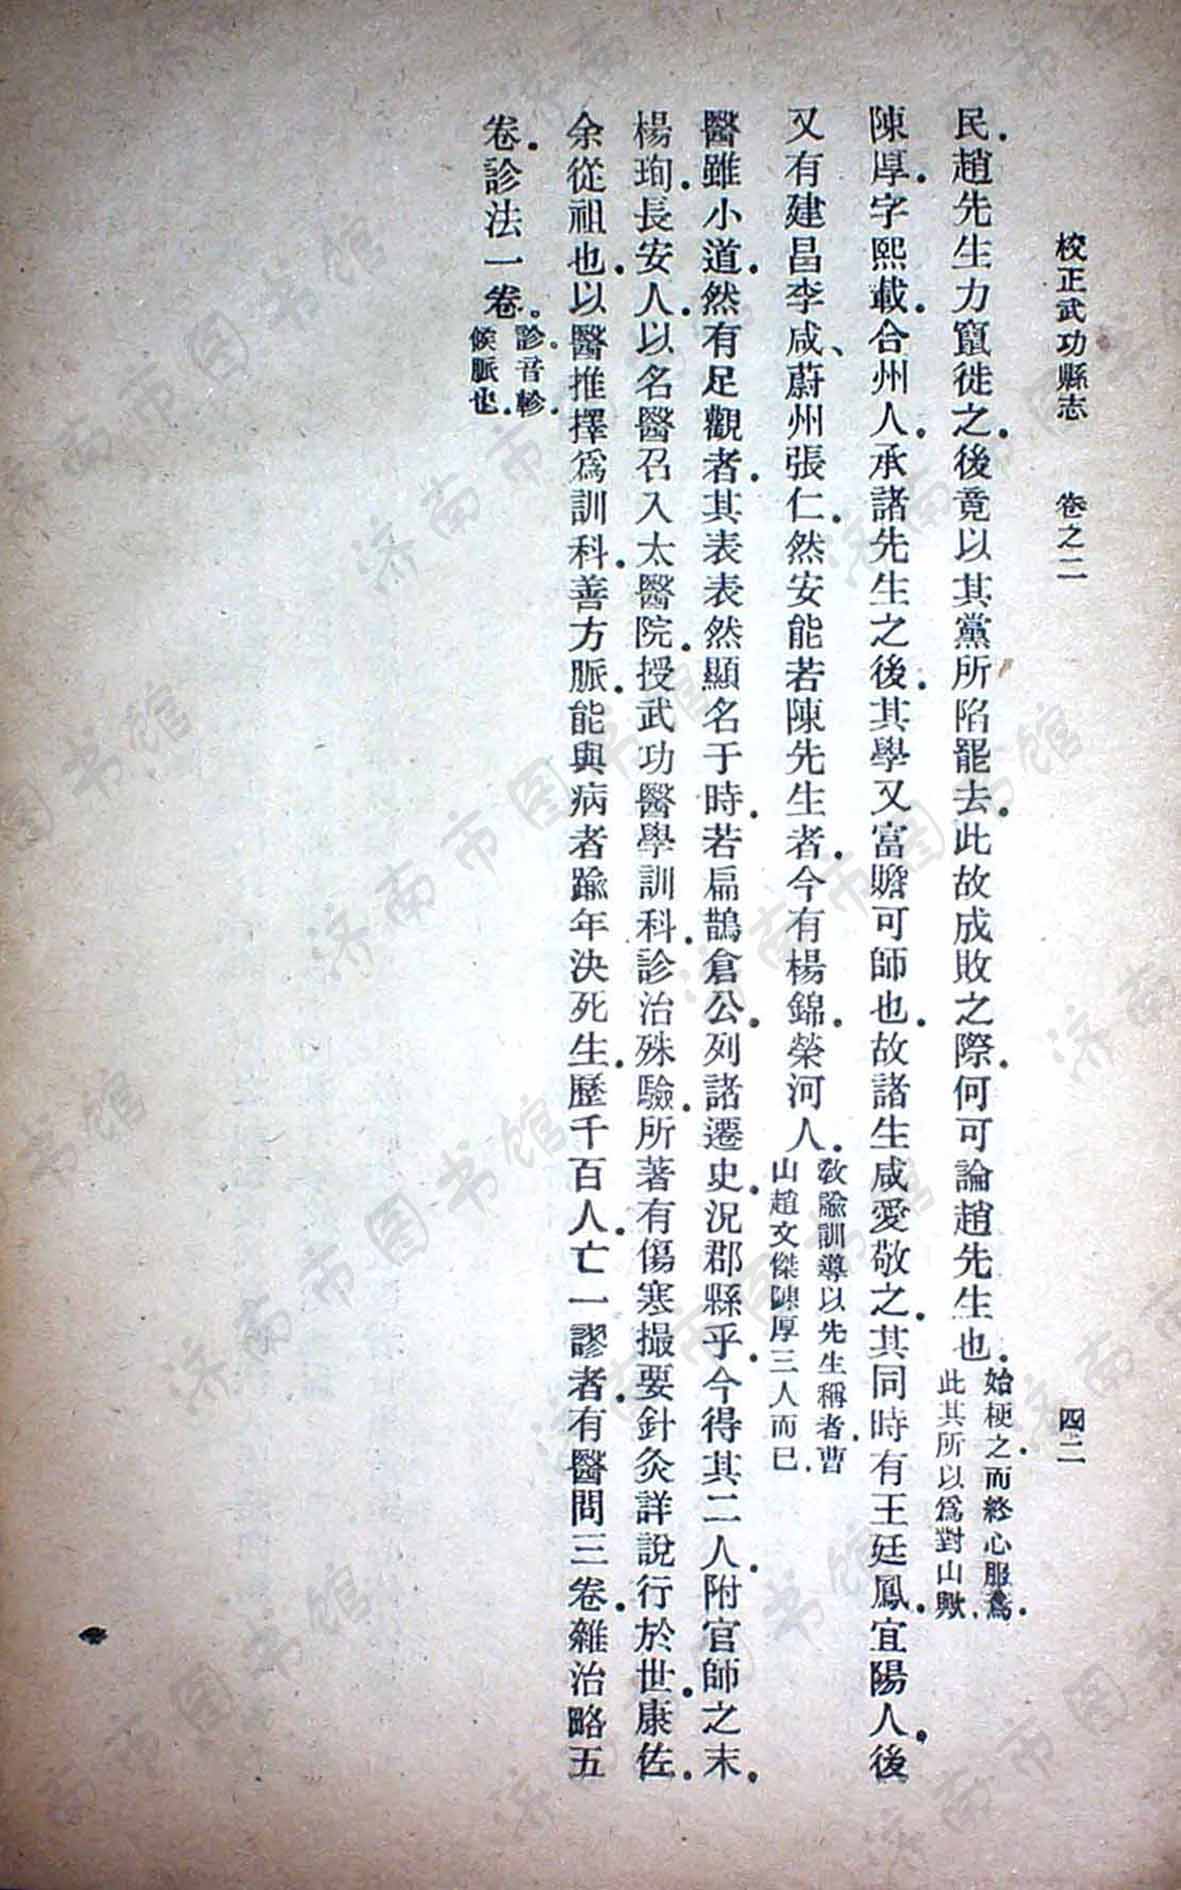 校正武功縣志 卷之二 四二
民．趙先生力竄徙之．後竟以其黨所陷罷去．此故成敗之際．何可論趙先生也．始梗之．而終心服焉．
此其所以爲對山歟．
陳厚．字熙載．合州人．承諸先生之後．其學又富贍可師也．故諸生咸愛敬之．其同時有王廷鳳．宜陽人．後
又有建昌李咸、蔚州張仁．然安能若陳先生者．今有楊錦．榮河人．教諭訓導以先生稱者．曹
山趙文傑陳厚三人而已．
醫雖小道．然有足觀者．其表表然顯名于時．若扁鵲倉公．列諸遷史．況郡縣乎．今得其二人．附官師之末．
楊珣．長安人．以名醫召入太醫院．授武功醫學訓科．診治殊驗．所著有傷寒撮要針灸詳說行於世．康佐．
余從祖也．以醫推擇爲訓科．善方脈．能與病者踰年決死生．歷千百人．亡一謬者．有醫問三卷．雜治略五
卷．診法一卷。診音軫．
候脈也．
济南市图书馆